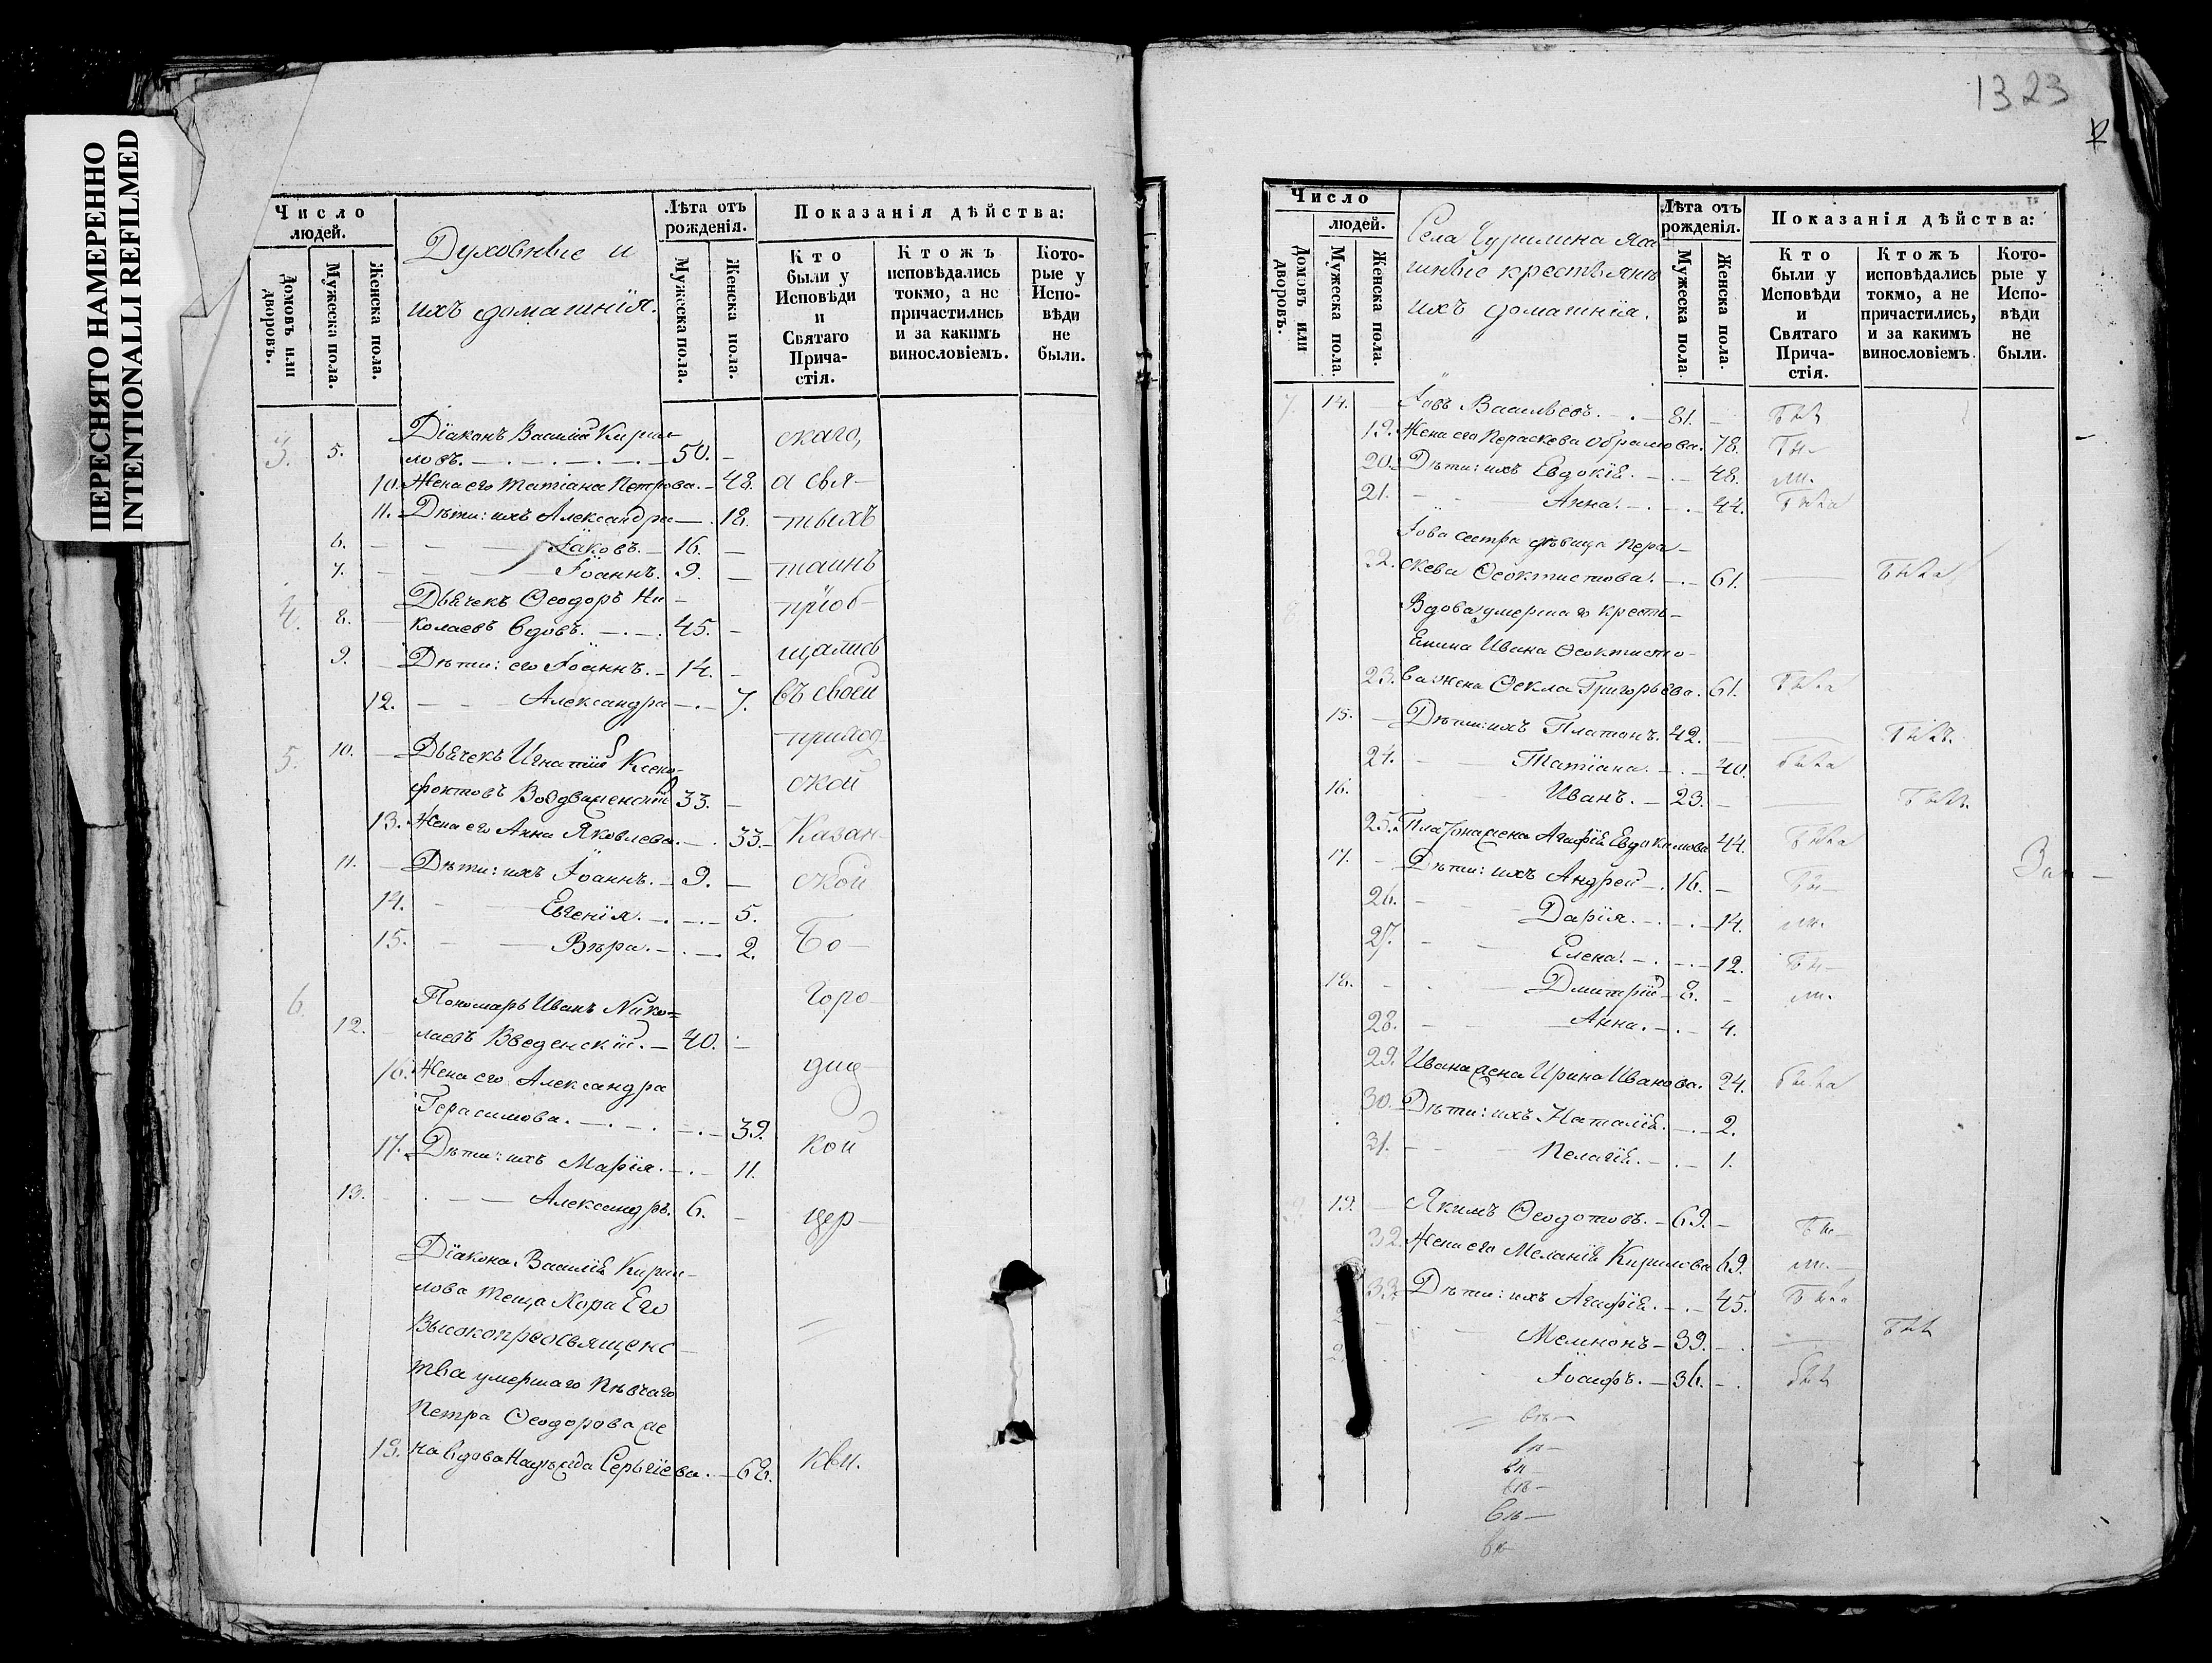 ПЕРЕСНЯТО НАМЕРЕННО
INTENTIONALLI REFILMED
Число
людей.
Домовъ или дворовъ.
Мужеска пола.
Женска пола.
Духовные и
ихъ домашнія.
Лѣта отъ
рожденія.
Мужеска пола.
Женска пола.
Показанія дѣйства:
Кто
были у
Исповѣди
и
Святаго
Прича-
стія.
Ктожъ
исповѣдались
токмо, а не
причастились
и за какимъ
винословіемъ.
Кото-
рые у
Испо-
вѣди
не
были.
3. 5. Діаконъ Василій Кирил-
ловъ. 50. скаго,
10. Жена его Татіана Петрова. 48. а свя-
11. Дѣти: ихъ Александра 18. тыхъ
6. Іаковъ. 16.
7. Іоаннъ. 9. таинъ
4. Дьячекъ Ѳеодоръ Ни-
8. колаевъ вдовъ. 45. пріоб-
9. Дѣти: его Іоаннъ. 14. щались
12. Александра 7. въ своей
приход
5. 10. Дьячекъ Игнатій Ксено-
фонтовъ Воздвиженскій 33. ской
13. Жена его Анна Яковлева. 33. Казан-
11. Дѣти: ихъ Іоаннъ. 9. ской
14. Евгенія. 5.
15. Вѣра. 2. Бо-
6. Пономарь Иванъ Нико=
12. лаевъ Введенскій. 40. горо-
16. Жена его Александра диц-
Герасимова. 39.
17. Дѣти: ихъ Марія. 11. кой
13. Александръ. 6. цер-
Діакона Василія Кирил-
лова теща Хора Его
Высокопреосвященс-
тва умершаго Пѣвчаго
Петра Ѳеодорова же
18. на вдова Надежда Сергіева. 68. кви.
1323
Число
людей.
Домовъ или дворовъ.
Мужеска пола.
Женска пола.
Села Чурилина Яса
шные крестьяне
ихъ домашнія.
Лѣта отъ
рожденія.
Мужеска пола.
Женска пола.
Показанія дѣйства:
Кто
были у
Исповѣди
и
Святаго
Прича-
стія.
Ктожъ
исповѣдались
токмо, а не
причастились,
и за какимъ
винословіемъ.
Кото-
рые у
Испо-
вѣди
не
были.
7. 14. Іовъ Васильевъ. 81. былъ
19. Жена его Пераскева Обрамова. 78. бы-
20. Дѣти: ихъ Евдокія. 48. ли.
21. Анна. 44. была
Іова сестра дѣвица Пера-
22. скева Ѳеоктистова. 61. была
Вдова умершаго кресть-
янина Ивана Ѳеоктисто-
23. ва жена Ѳекла Григорьева. 61. была
15. Дѣти: ихъ Платонъ. 42. былъ.
24. Татіана. 40. была
16. Иванъ. 23. былъ.
25. Платона жена Агафія Евдокимова 44. была
17. Дѣти: ихъ Андрей 16. бы-
26. Дарія. 14. ли.
27. Елена. 12. бы-
18. Дмитрій 8. ли.
28. Анна. 4.
29. Ивана жена Ирина Иванова. 24. была
30. Дѣти: ихъ Наталія. 2.
31. Пелагія. 1.
19. Якимъ Ѳеодотовъ. 69. бы-
32. Жена его Меланія Кирилова 69. ли.
33. Дѣти: ихъ Агафія. 45. была
Мемнонъ 39. былъ
Іосифъ. 36. былъ